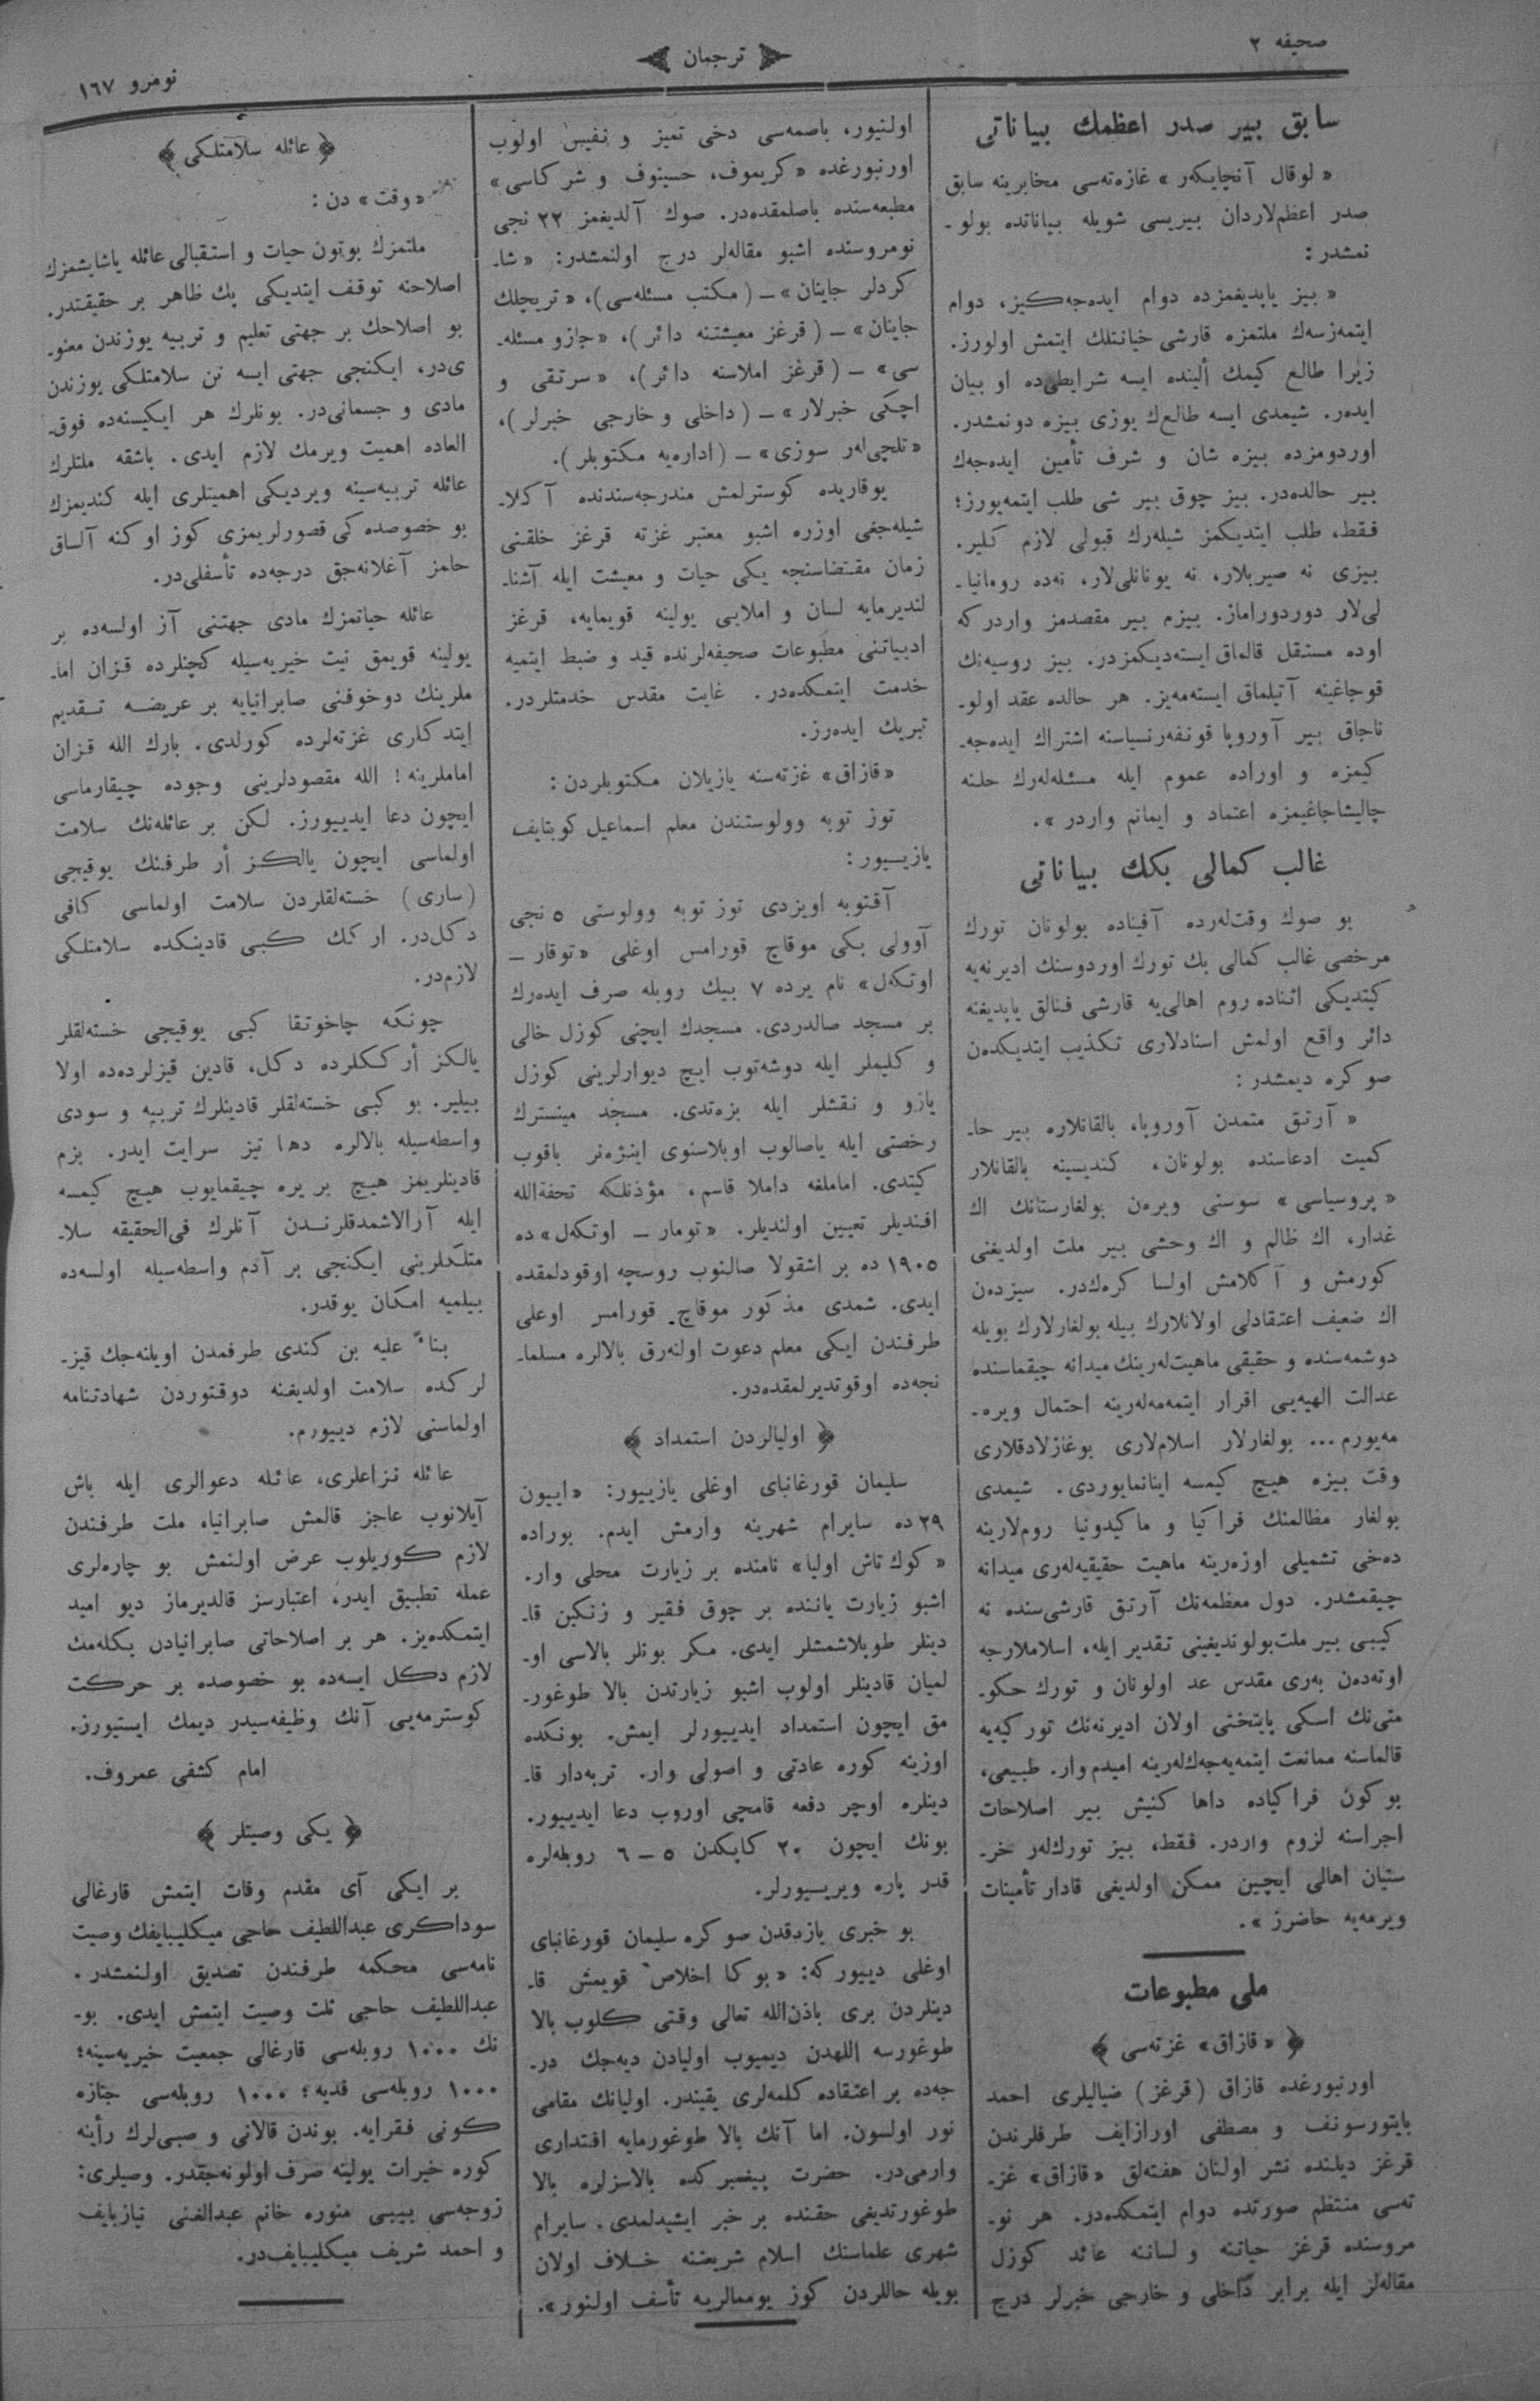 صحیفه ٢
ترجمان
نومرو ١٦٧
سابق بیر صدر اعظمك بیاناتی
« لوقال آنچایكەر » غازەتەسی مخابرینه سابق
صدر اعظم‌لاردان بیریسی شویله بیاناتده بولو ـ
نمشدر :
« بیز یاپدیغمزده دوام ایده‌جه‌كیز، دوام
ایتمه‌زسەك ملتمزه قارشی خیانتلك ایتمش اولورز.
زیرا طالع كیمك ألینده ایسه شرایطی‌ده او بیان
ایده‌ر. شیمدی ایسه طالع‌ك یوزی بیزه دونمشدر.
اوردومزده بیزه شان و شرف تأمین ایده‌جەك
بیر حالده‌در. بیز چوق بیر شی طلب ایتمه‌یورز؛
فقط، طلب ایتدیكمز شیله‌رك قبولی لازم كلیر.
بیزی نه صیربلار، نه یونانلی‌لار، نه‌ده رومانیا ـ
لی‌لار دوردوراماز. بیزم بیر مقصدمز واردركه
اوده مستقل قالماق ایسته‌دیكمزدر. بیز روسیه‌نك
قوجاغینه آتیلماق ایسته‌مه‌یز. هر حالده عقد اولو ـ
ناجاق بیر آوروپا قونفه‌رنسیاسنه اشتراك ایده‌جه ـ
كیمزه و اوراده عموم ایله مسئله‌له‌رك حلنه
چالیشاجاغیمزه اعتماد و ایمانم واردر ».
غالب كمالی بكك بیاناتی
بو صوك وقت‌له‌رده آفیناده بولونان تورك
مرخصی غالب كمالی بك تورك اوردوسنك ادیرنه‌یه
كیتدیكی اثناده روم اهالی‌یه قارشی فنالق یاپدیغنه
دائر واقع اولمش اسنادلاری تكذیب ایتدیكده‌ن
صوكره دیمشدر :
« آرتق متمدن آوروپا، بالقانلاره بیر حا ـ
كمیت ادعاسنده بولونان، كندیسینه بالقانلار
« پروسیاسی » سوسنی ویره‌ن بولغارستانك اك
غدار، اك ظالم و اك وحشی بیر ملت اولدیغنی
كورمش و آكلامش اولسا كره‌ك‌در. سیزده‌ن
اك ضعیف اعتقادلی اولانلارك بیله بولغارلارك بویله
دوشمه‌سنده و حقیقی ماهیت‌له‌رینك میدانه چیقماسنده
عدالت الهیه‌یی اقرار ایتمه‌مه‌له‌رینه احتمال ویره ـ
مه‌یورم ... بولغارلار اسلام‌لاری بوغازلادقلاری
وقت بیزه هیچ كیمسه اینانمایوردی. شیمدی
بولغار مظالمنك فراكیا و ماكیدونیا روم‌لارینه
ده‌خی تشمیلی اوزه‌رینه ماهیت حقیقیه‌له‌ری میدانه
چیقمشدر. دول معظمه‌نك آرتق قارشی‌سنده نه
كیبی بیر ملت‌بولوندیغینی تقدیر ایله، اسلاملارجه
اوته‌ده‌ن به‌ری مقدس عد اولونان و تورك حكو ـ
متی‌نك اسكی پایتختی اولان ادیرنه‌نك توركیه‌یه
قالماسنه ممانعت ایتمه‌یه‌جەك‌له‌رینه امیدم وار. طبیعی،
بوكون فراكیاده داها كنیش بیر اصلاحات
اجراسنه لزوم واردر. فقط، بیز تورك‌له‌ر خر ـ
ستیان اهالی ایچین ممكن اولدیغی قادار تأمینات
ویرمه‌یه حاضرز ».
ملی مطبوعات
﴿ « قازاق » غزته‌سی ﴾
اورنبورغده قازاق ( قرغز ) ضیالیلری احمد
بایتورسونف و مصطفی اورازایف طرفلرندن
قرغز دیلنده نشر اولنان هفته‌لق « قازاق » غز ـ
ته‌سی منتظم صورتده دوام ایتمكده‌در. هر نو ـ
مروسنده قرغز حیاتنه و لسانه عائد كوزل
مقاله‌لر ایله برابر داخلی و خارجی خبرلر درج
اولنیور، باصمه‌سی دخی تمیز و نفیس اولوب
اورنبورغده « كریموف، حسینوف و شركاسی »
مطبعه‌سنده باصلمقده‌در. صوك آلدیغمز ٢٢ نجی
نومروسنده اشبو مقاله‌لر درج اولنمشدر: « شا ـ
كردلر جاینان » ـ ( مكتب مسئله‌سی )، « تریچلك
جاینان » ـ ( قرغز معیشتنه دائر )، « جازو مسئله ـ
سی » ـ ( قرغز املاسنه دائر )، « سرتقی و
اچكی خبرلار » ـ ( داخلی و خارجی خبرلر )،
« تلچی‌لەر سوزی » ـ ( اداره‌یه مكتوبلر ).
یوقاریده كوسترلمش مندرجه‌سندنده آكلا ـ
شیله‌جغی اوزره اشبو معتبر غزته قرغز خلقنی
زمان مقتضاسنجه یكی حیات و معیشت ایله آشنا ـ
لندیرمایه لسان و املایی یولینه قویمایه، قرغز
ادبیاتنی مطبوعات صحیفه‌لرنده قید و ضبط ایتمیه
خدمت ایتمكده‌در. غایت مقدس خدمتلردر.
تبریك ایده‌رز.
« قازاق » غزته‌سنه یازیلان مكتوبلردن :
توز توبه وولوستندن معلم اسماعیل كوبتایف
یازییور :
آقتوبه اویزدی توز توبه وولوستی ٥ نجی
آوولی بكی موقاچ قورامس اوغلی « توقار ـ
اوتكەل » نام یرده ٧ بیك روبله صرف ایده‌رك
بر مسجد صالدردی. مسجدك ایچنی كوزل خالی
و كلیملر ایله دوشه‌توب ایچ دیوارلرینی كوزل
یازو و نقشلر ایله بزه‌تدی. مسجد مینسترك
رخصتی ایله یاصالوب اوبلاسنوی اینژه‌نر باقوب
كیتدی. اماملغه داملا قاسم، مؤذنلكه تحفةالله
افندیلر تعیین اولندیلر. « تومار ـ اوتكەل » ده
١٩٠٥ ده بر اشقولا صالنوب روسچه اوقودلمقده
ایدی. شمدی مذكور موقاچ قورامس اوغلی
طرفندن ایكی معلم دعوت اولنه‌رق بالالره مسلما ـ
نجه‌ده اوقوتدیرلمقده‌در.
﴿ اولیالردن استمداد ﴾
سلیمان قورغانبای اوغلی یازییور: « اییون
٢٩ ده سایرام شهرینه وارمش ایدم. بوراده
« كوك تاش اولیا » نامنده بر زیارت محلی وار.
اشبو زیارت یاننده بر چوق فقیر و زنكین قا ـ
دینلر طوپلاشمشلر ایدی. مكر بونلر بالاسی او ـ
لمیان قادینلر اولوب اشبو زیارتدن بالا طوغور ـ
مق ایچون استمداد ایدییورلر ایمش. بونكده
اوزینه كوره عادتی و اصولی وار. تربه‌دار قا ـ
دینلره اوچر دفعه قامچی اوروب دعا ایدییور.
بونك ایچون ٢٠ كاپكدن ٥ ـ ٦ روبله‌لره
قدر پاره ویرییورلر.
بو خبری یازدقدن صوكره سلیمان قورغانبای
اوغلی دییوركه: « بوكا اخلاص قویمش قا ـ
دینلردن بری باذن‌الله تعالی وقتی كلوب بالا
طوغورسه اللهدن دیمیوب اولیادن دیه‌جك در ـ
جه‌ده بر اعتقاده كلمه‌لری یقیندر. اولیانك مقامی
نور اولسون. اما آنك بالا طوغورمایه اقتداری
وارمی‌در. حضرت پیغمبركده بالاسزلره بالا
طوغورتدیغی حقنده بر خبر ایشیدلمدی. سایرام
شهری علماسنك اسلام شریعتنه خلاف اولان
بویله حاللردن كوز یوممالریه تأسف اولنور ».
﴿ عائله سلامتلكی ﴾
« وقت » دن :
ملتمزك بوتون حیات و استقبالی عائله یاشایشمزك
اصلاحنه توقف ایتدیكی پك ظاهر بر حقیقتدر.
بو اصلاحك بر جهتی تعلیم و تربیه یوزندن معنو ـ
ی‌در، ایكنجی جهتی ایسه تن سلامتلكی یوزندن
مادی و جسمانی‌در. بونلرك هر ایكیسنه‌ده فوق ـ
العاده اهمیت ویرمك لازم ایدی. باشقه ملتلرك
عائله تربیه‌سینه ویردیكی اهمیتلری ایله كندیمزك
بو خصوصده‌كی قصورلریمزی كوز اوكنه آلساق
حامز آغلانه‌جق درجه‌ده تأسفلی‌در.
عائله حیاتمزك مادی جهتنی آز اولسه‌ده بر
یولینه قویمق نیت خیریه‌سیله كچنلرده قزان اما ـ
ملرینك دوخوفنی صابرانیایه بر عریضه تقدیم
ایتدكلری غزته‌لرده كورلدی. بارك الله قزان
اماملرینه ! الله مقصودلرینی وجوده چیقارماسی
ایچون دعا ایدییورز. لكن بر عائله‌نك سلامت
اولماسی ایچون یالكز أر طرفنك یوقیجی
( ساری ) خسته‌لقلردن سلامت اولماسی كافی
دكل‌در. ارك‌ك كبی قادینكده سلامتلكی
لازم‌در.
چونكه چاخوتقا كبی یوقیجی خسته‌لقلر
یالكز أرككلرده دكل، قادین قیزلرده‌ده اولا
بیلیر. بو كبی خسته‌لقلر قادینلرك تربیه و سودی
واسطه‌سیله بالالره دها تیز سرایت ایدر. بزم
قادینلریمز هیچ بر یره چیقمایوب هیچ كیمسه
ایله آرالاشمدقلرندن آنلرك فی‌الحقیقه سلا ـ
متلكلرینی ایكنجی بر آدم واسطه‌سیله اولسه‌ده
بیلمیه امكان یوقدر.
بناءً علیه بن كندی طرفمدن اویلنه‌جك قیز ـ
لركده سلامت اولدیغنه دوقتوردن شهادتنامه
اولماسنی لازم دییورم.
عائله نزاعلری، عائله دعوالری ایله باش
آیلانوب عاجز قالمش صابرانیا، ملت طرفندن
لازم كوریلوب عرض اولنمش بو چاره‌لری
عمله تطبیق ایدر، اعتبارسز قالدیرماز دیو امید
ایتمكده‌یز. هر بر اصلاحاتی صابرانیادن بكله‌مك
لازم دكل ایسه‌ده بو خصوصده بر حركت
كوسترمه‌یی آنك وظیفه‌سیدر دیمك ایستیورز.
امام كشفی عمروف.
﴿ یكی وصیتلر ﴾
بر ایكی آی مقدم وفات ایتمش قارغالی
سوداكری عبداللطیف حاجی میكلیبایفك وصیت
نامه‌سی محكمه طرفندن تصدیق اولنمشدر.
عبداللطیف حاجی ثلت وصیت ایتمش ایدی. بو ـ
نك ١٠٠٠ روبله‌سی قارغالی جمعیت خیریه‌سینه؛
١٠٠٠ روبله‌سی فدیه؛ ١٠٠٠ روبله‌سی جنازه
كونی فقرایه. بوندن قالانی و صبی‌لرك رأینه
كوره خیرات یولینه صرف اولونه‌جقدر. وصیلری:
زوجه‌سی بیبی منوره خانم عبدالغنی نیازبایف
و احمد شریف میكلیبایف‌در.